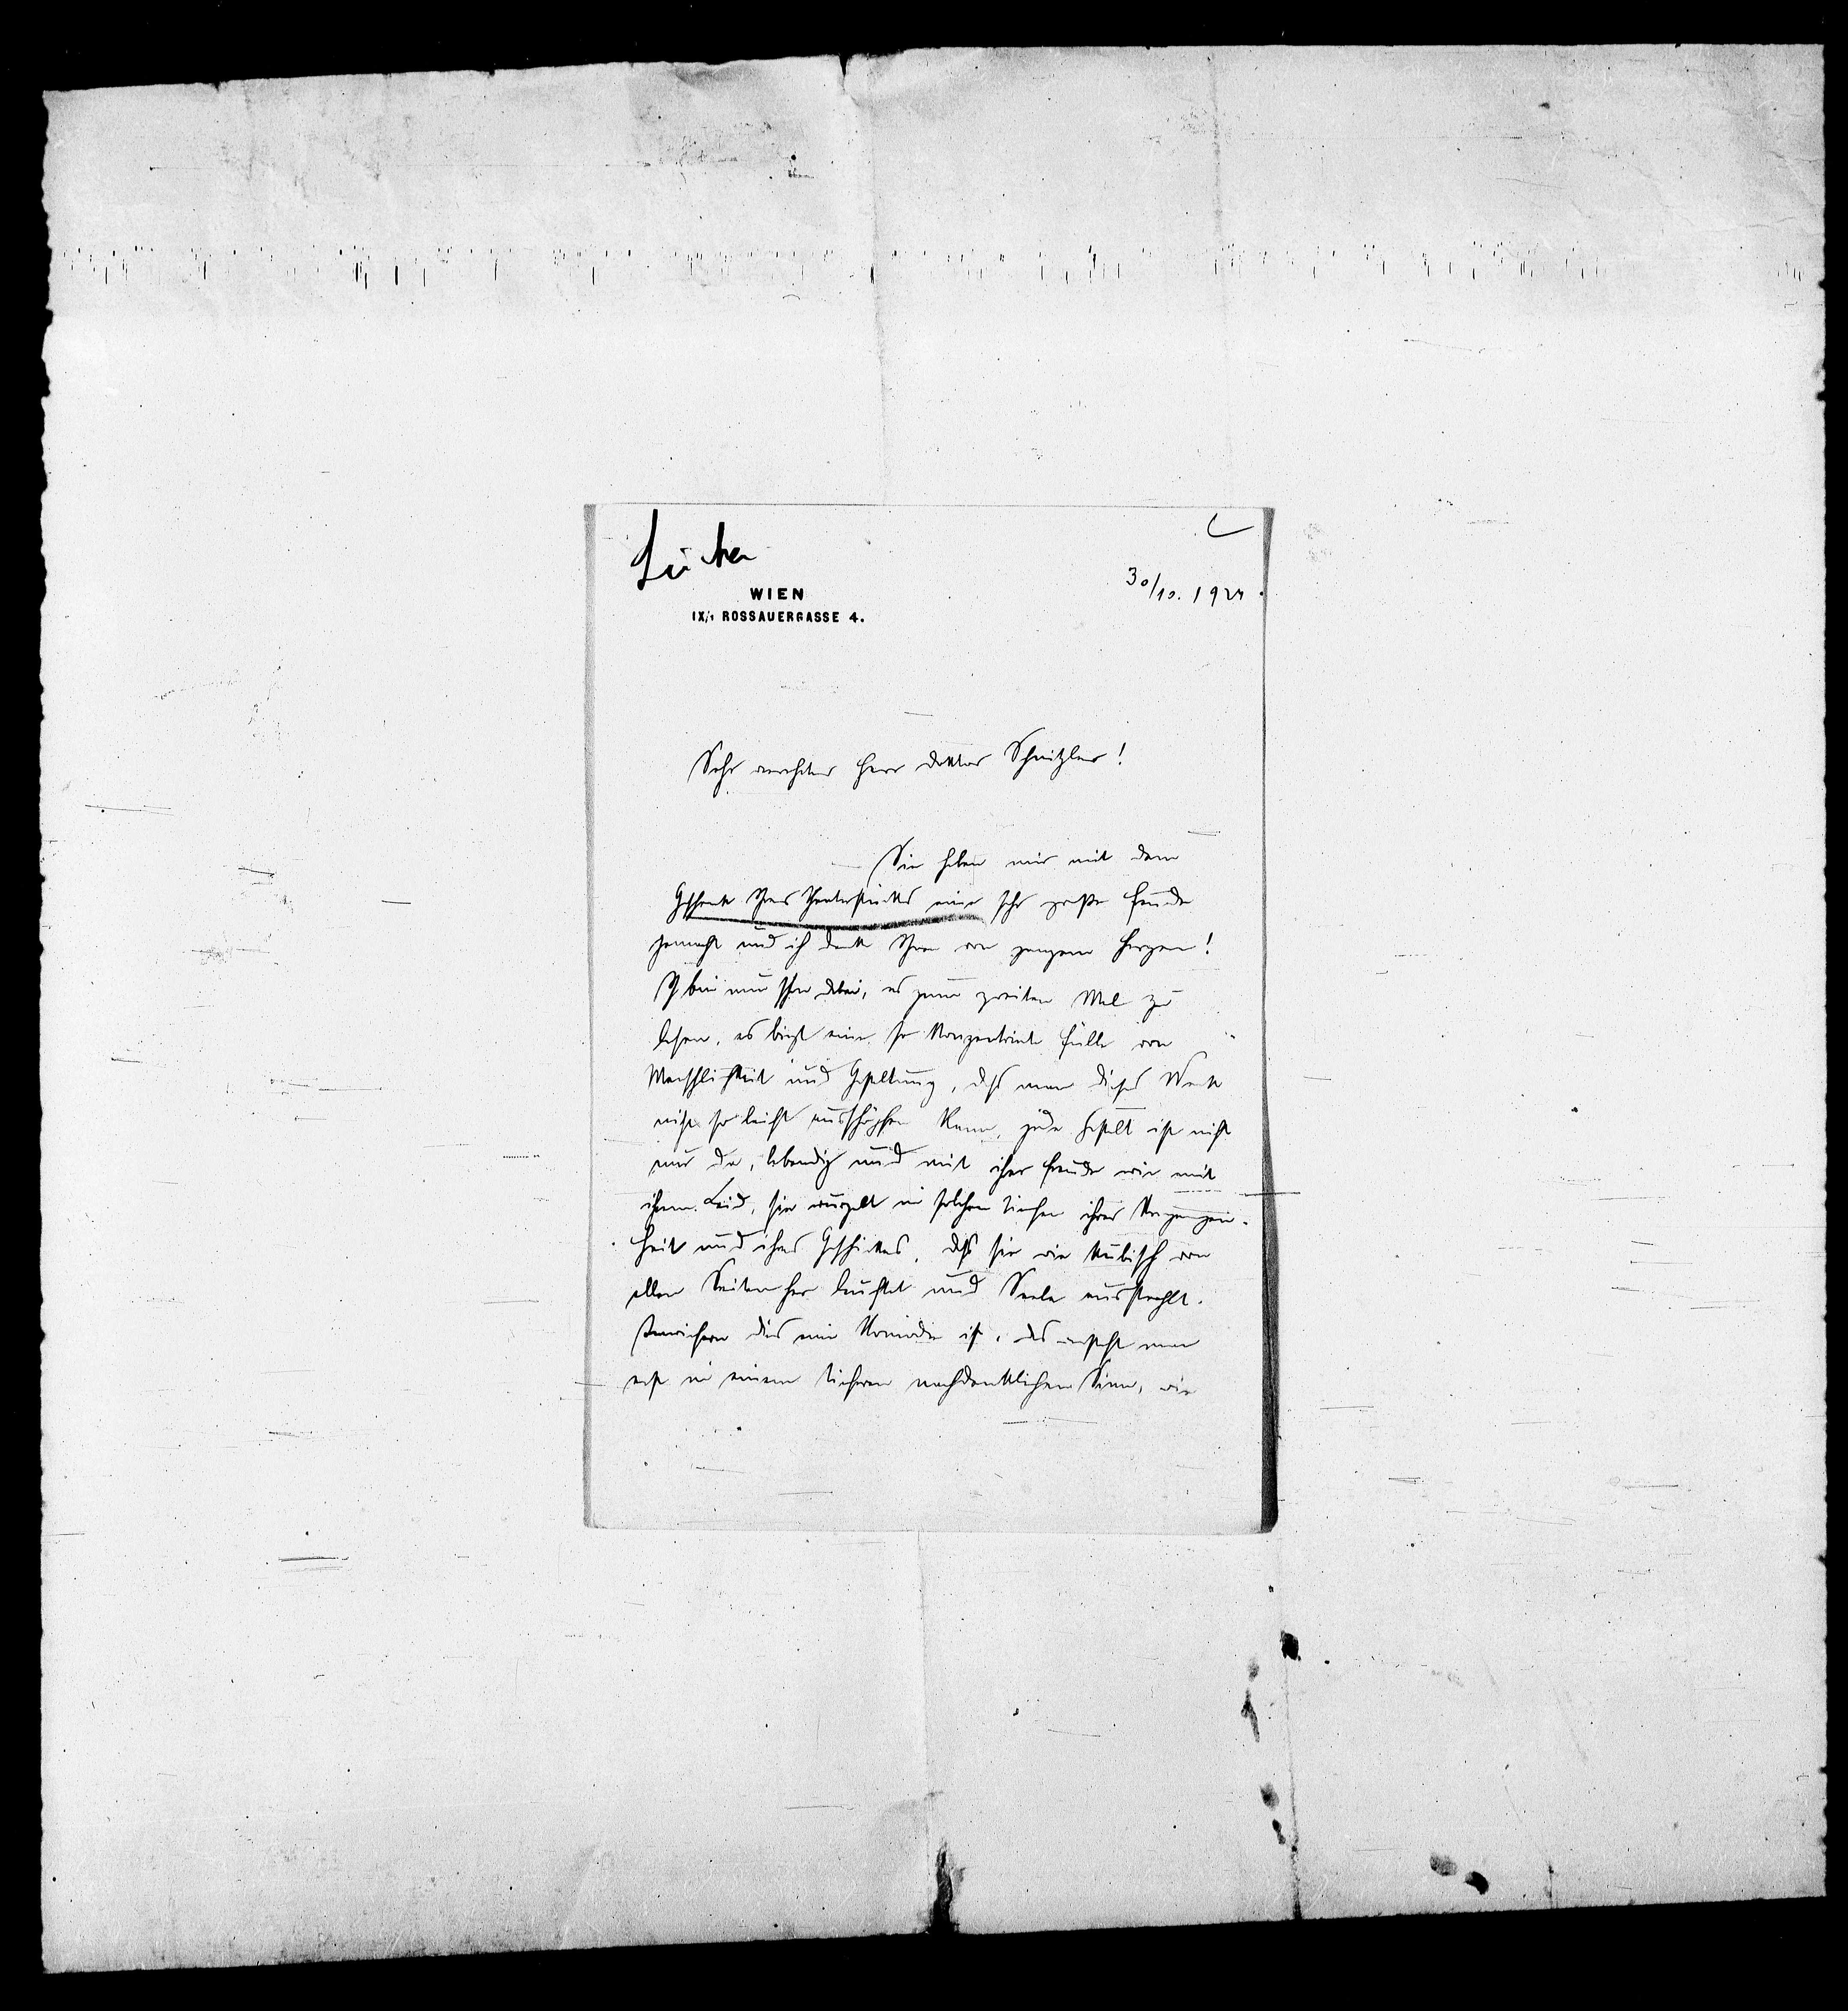 WIEN
IX/1 ROSSAUERGASSE 4.
30/10. 1924.
Sehr verehrter Herr Doktor Schnitzler!
Sie haben mir mit dem
Geschenk Ihres Theaterstücks eine sehr große Freude
gemacht und ich danke Ihnen von ganzem Herzen!
Ich bin nun schon dabei, es zum zweiten Mal zu
lesen, es birgt eine so konzentrierte Fülle von
Menschlichkeit und Gestaltung, daß man dieses Werk
nicht so leicht ausschöpfen kann, jede Gestalt ist nicht
nur da, lebendig und mit ihrer Freude wie mit
ihrem Leid, sie wurzelt in solchen Tiefen ihrer Vergangen-
heit und ihres Geschickes, daß sie wie kubisch von
allen Seiten her leuchtet und Seele ausstrahlt.
Inwiefern dies eine Komödie ist, das versteht man
erst in einem tieferen nachdenklichen Sinn, wie